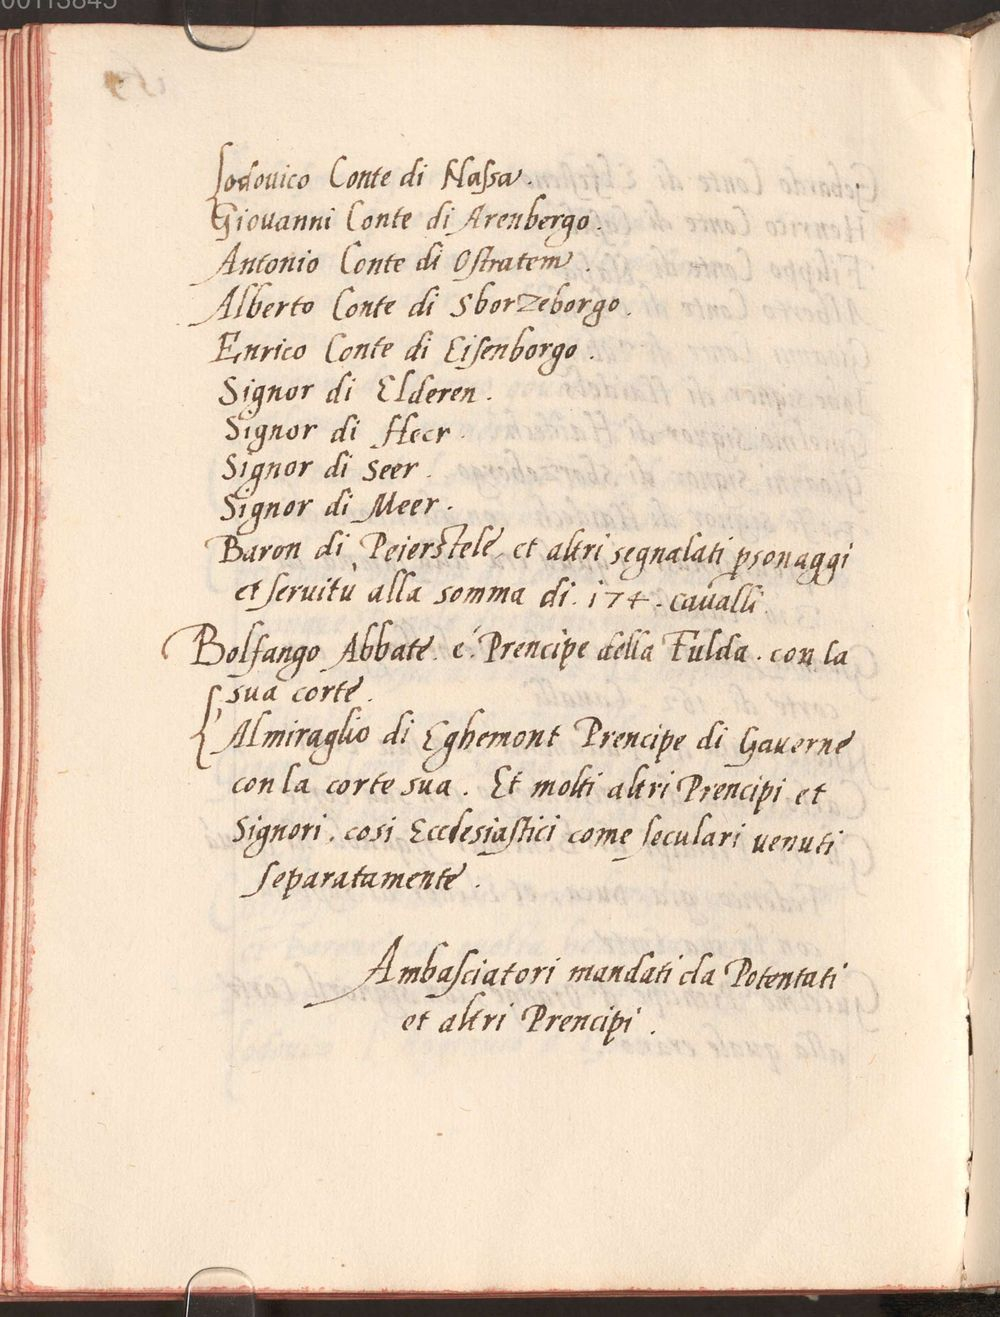 00113845
Lodouico Conte di Naſsa.
Giouanni Conte di Arenbergo.
Antonio Conte di Oſtratem.
Alberto Conte di Sborzeborgo.
Enrico Conte di Eiſenborgo.
Signor di Elderen.
Signor di Heer.
Signor di Seer.
Signor di Meer.
Baron di Peierstele, et altri segnalati p̱sonaggi
et ſeruitù alla somma di .174. cauàlli.
Bolfango Abbate. é. Prencipe della Fulda. con la
sua corte.
L'Almiraglio di Eghemont Prencipe di Gauerne
con la corte sua. Et molti altri Prencipi et
Signori. cosi Ecclesiaſtici come ſeculari uenuti
ſeparatamente.
Ambaſciatori mandati da Potentati
et altri Prencipi.